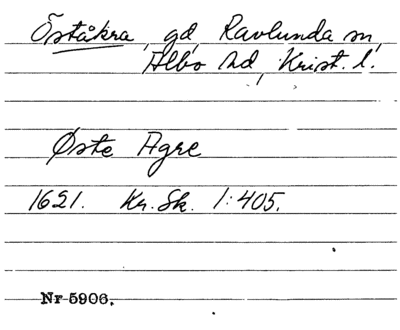 Öståkra, gd, Ravlunda sn,
Albo hd, Krist. l.
Øste Agre
1621. Kr. Sk. 1:405.
Nr 5906.